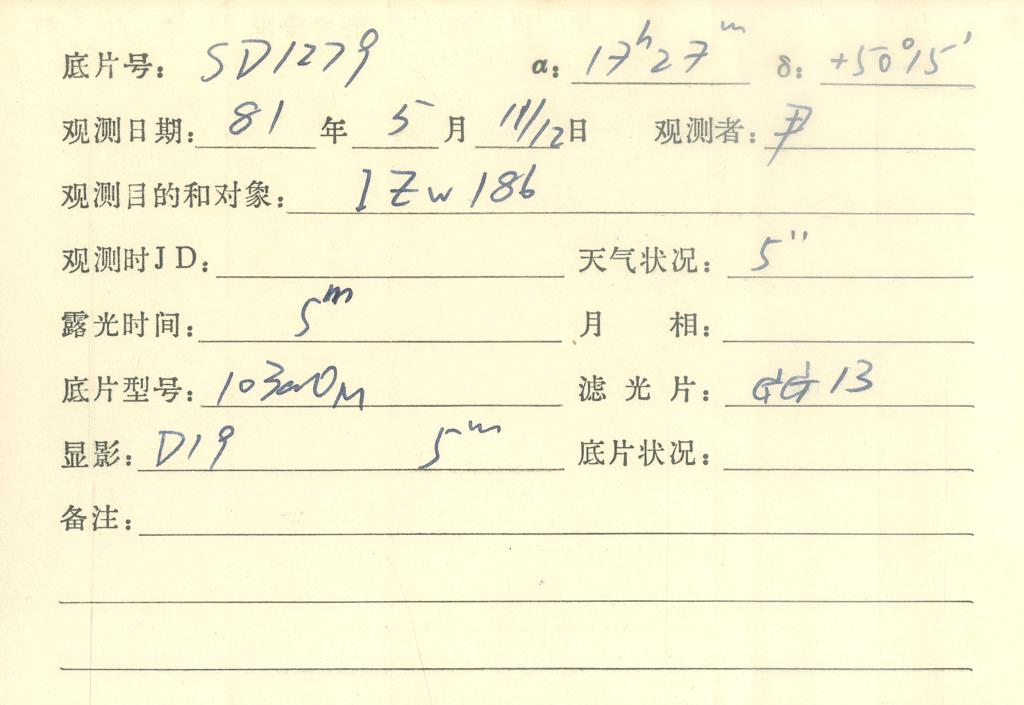 底片号: SD1279 α: 17ʰ27ᵐ δ: +50°15′
观测日期: 81 年 5 月 11/12 日 观测者: 尹
观测目的和对象: I Zw 186
观测时JD: 天气状况: 5″
露光时间: 5ᵐ 月 相:
底片型号: 103aO 滤光片: GG 13
显影: D19 5ᵐ 底片状况:
备注: